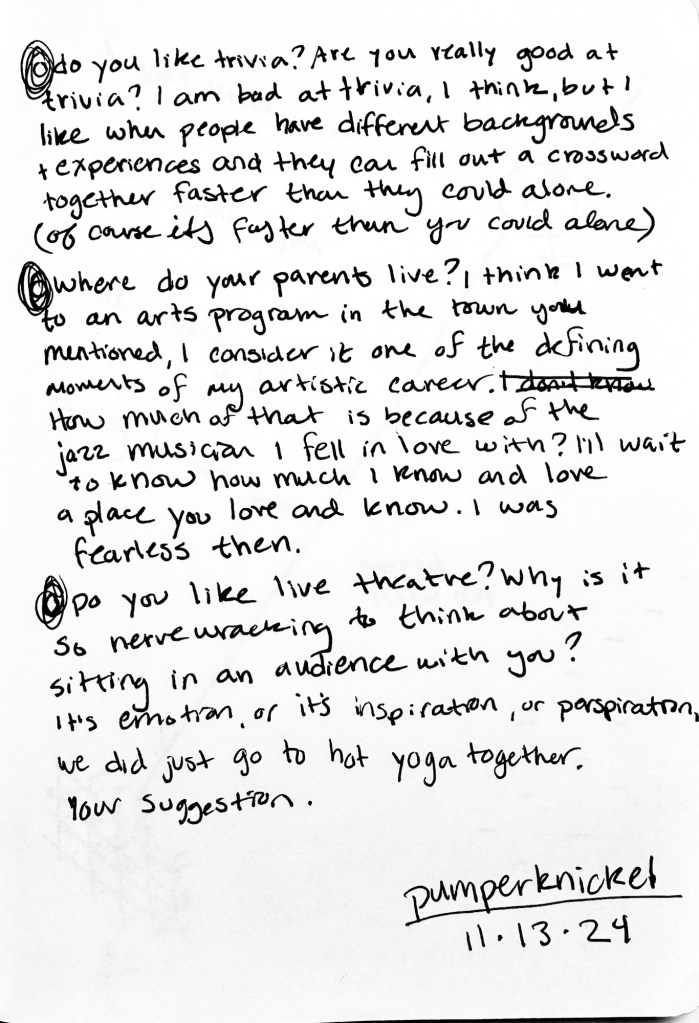 do you like trivia? Are you really good at
trivia? I am bad at trivia, I think, but I
like when people have different backgrounds
+ experiences and they can fill out a crossword
together faster than they could alone.
(of course it's faster than you could alone)
where do your parents live? I think I went
to an arts program in the town you
mentioned, I consider it one of the defining
moments of my artistic career. I don't know
How much of that is because of the
jazz musician I fell in love with? I'll wait
to know how much I know and love
a place you love and know. I was
fearless then.
Do you like live theatre? Why is it
so nervewracking to think about
sitting in an audience with you?
It's emotion, or it's inspiration, or perspiration,
we did just go to hot yoga together.
Your suggestion.
pumperknickel
11.13.24